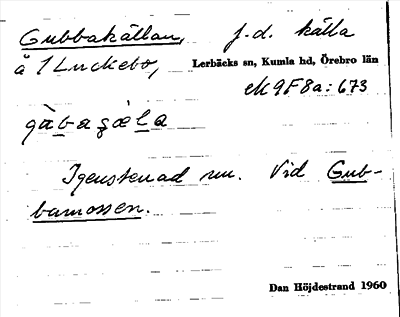 Gubbakällan, f.d. källa
å 1 Luckebo, Lerbäcks sn, Kumla hd, Örebro län
ek 9F8a:673
Igenstenad nu. Vid Gub-
bamossen.
Dan Höjdestrand 1960